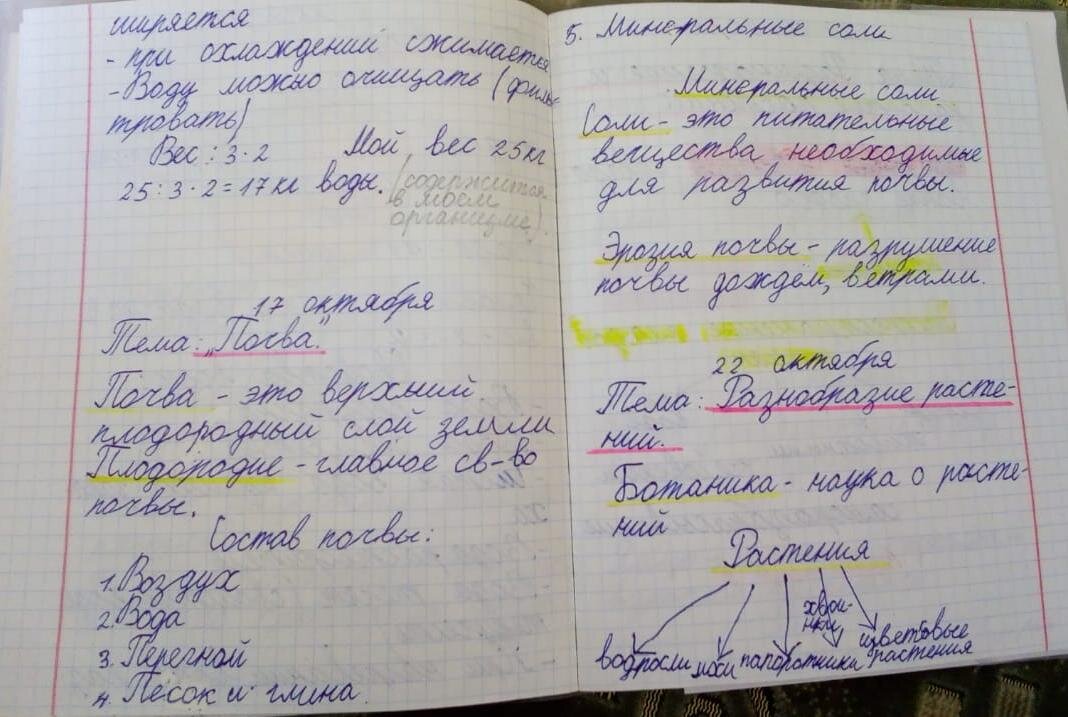 ширяется
- при охлаждений сжимается
- Воду можно очищать (филь
тровать)
Вес : 3 · 2 Мой вес 25 кг
25 : 3 · 2 = 17 кг воды. (содержится
в моем
организме).
17 октября
Тема: „Почва."
Почва - это верхний
плодородный слой земли
Плодородие - главное св-во
почвы.
Состав почвы:
1. Воздух
2. Вода
3. Перегной
4. Песок и глина.
5. Минеральные соли
Минеральные соли
Соли - это питательные
вещества необходимые
для развития почвы.
Эрозия почвы - разрушение
почвы дождём, ветрами.
22 октября
Тема: Разнобразие расте-
ний.
Ботаника - наука о расте-
ний
Растения
водросли мохи папоротники хвой-
ники цветовые
растения